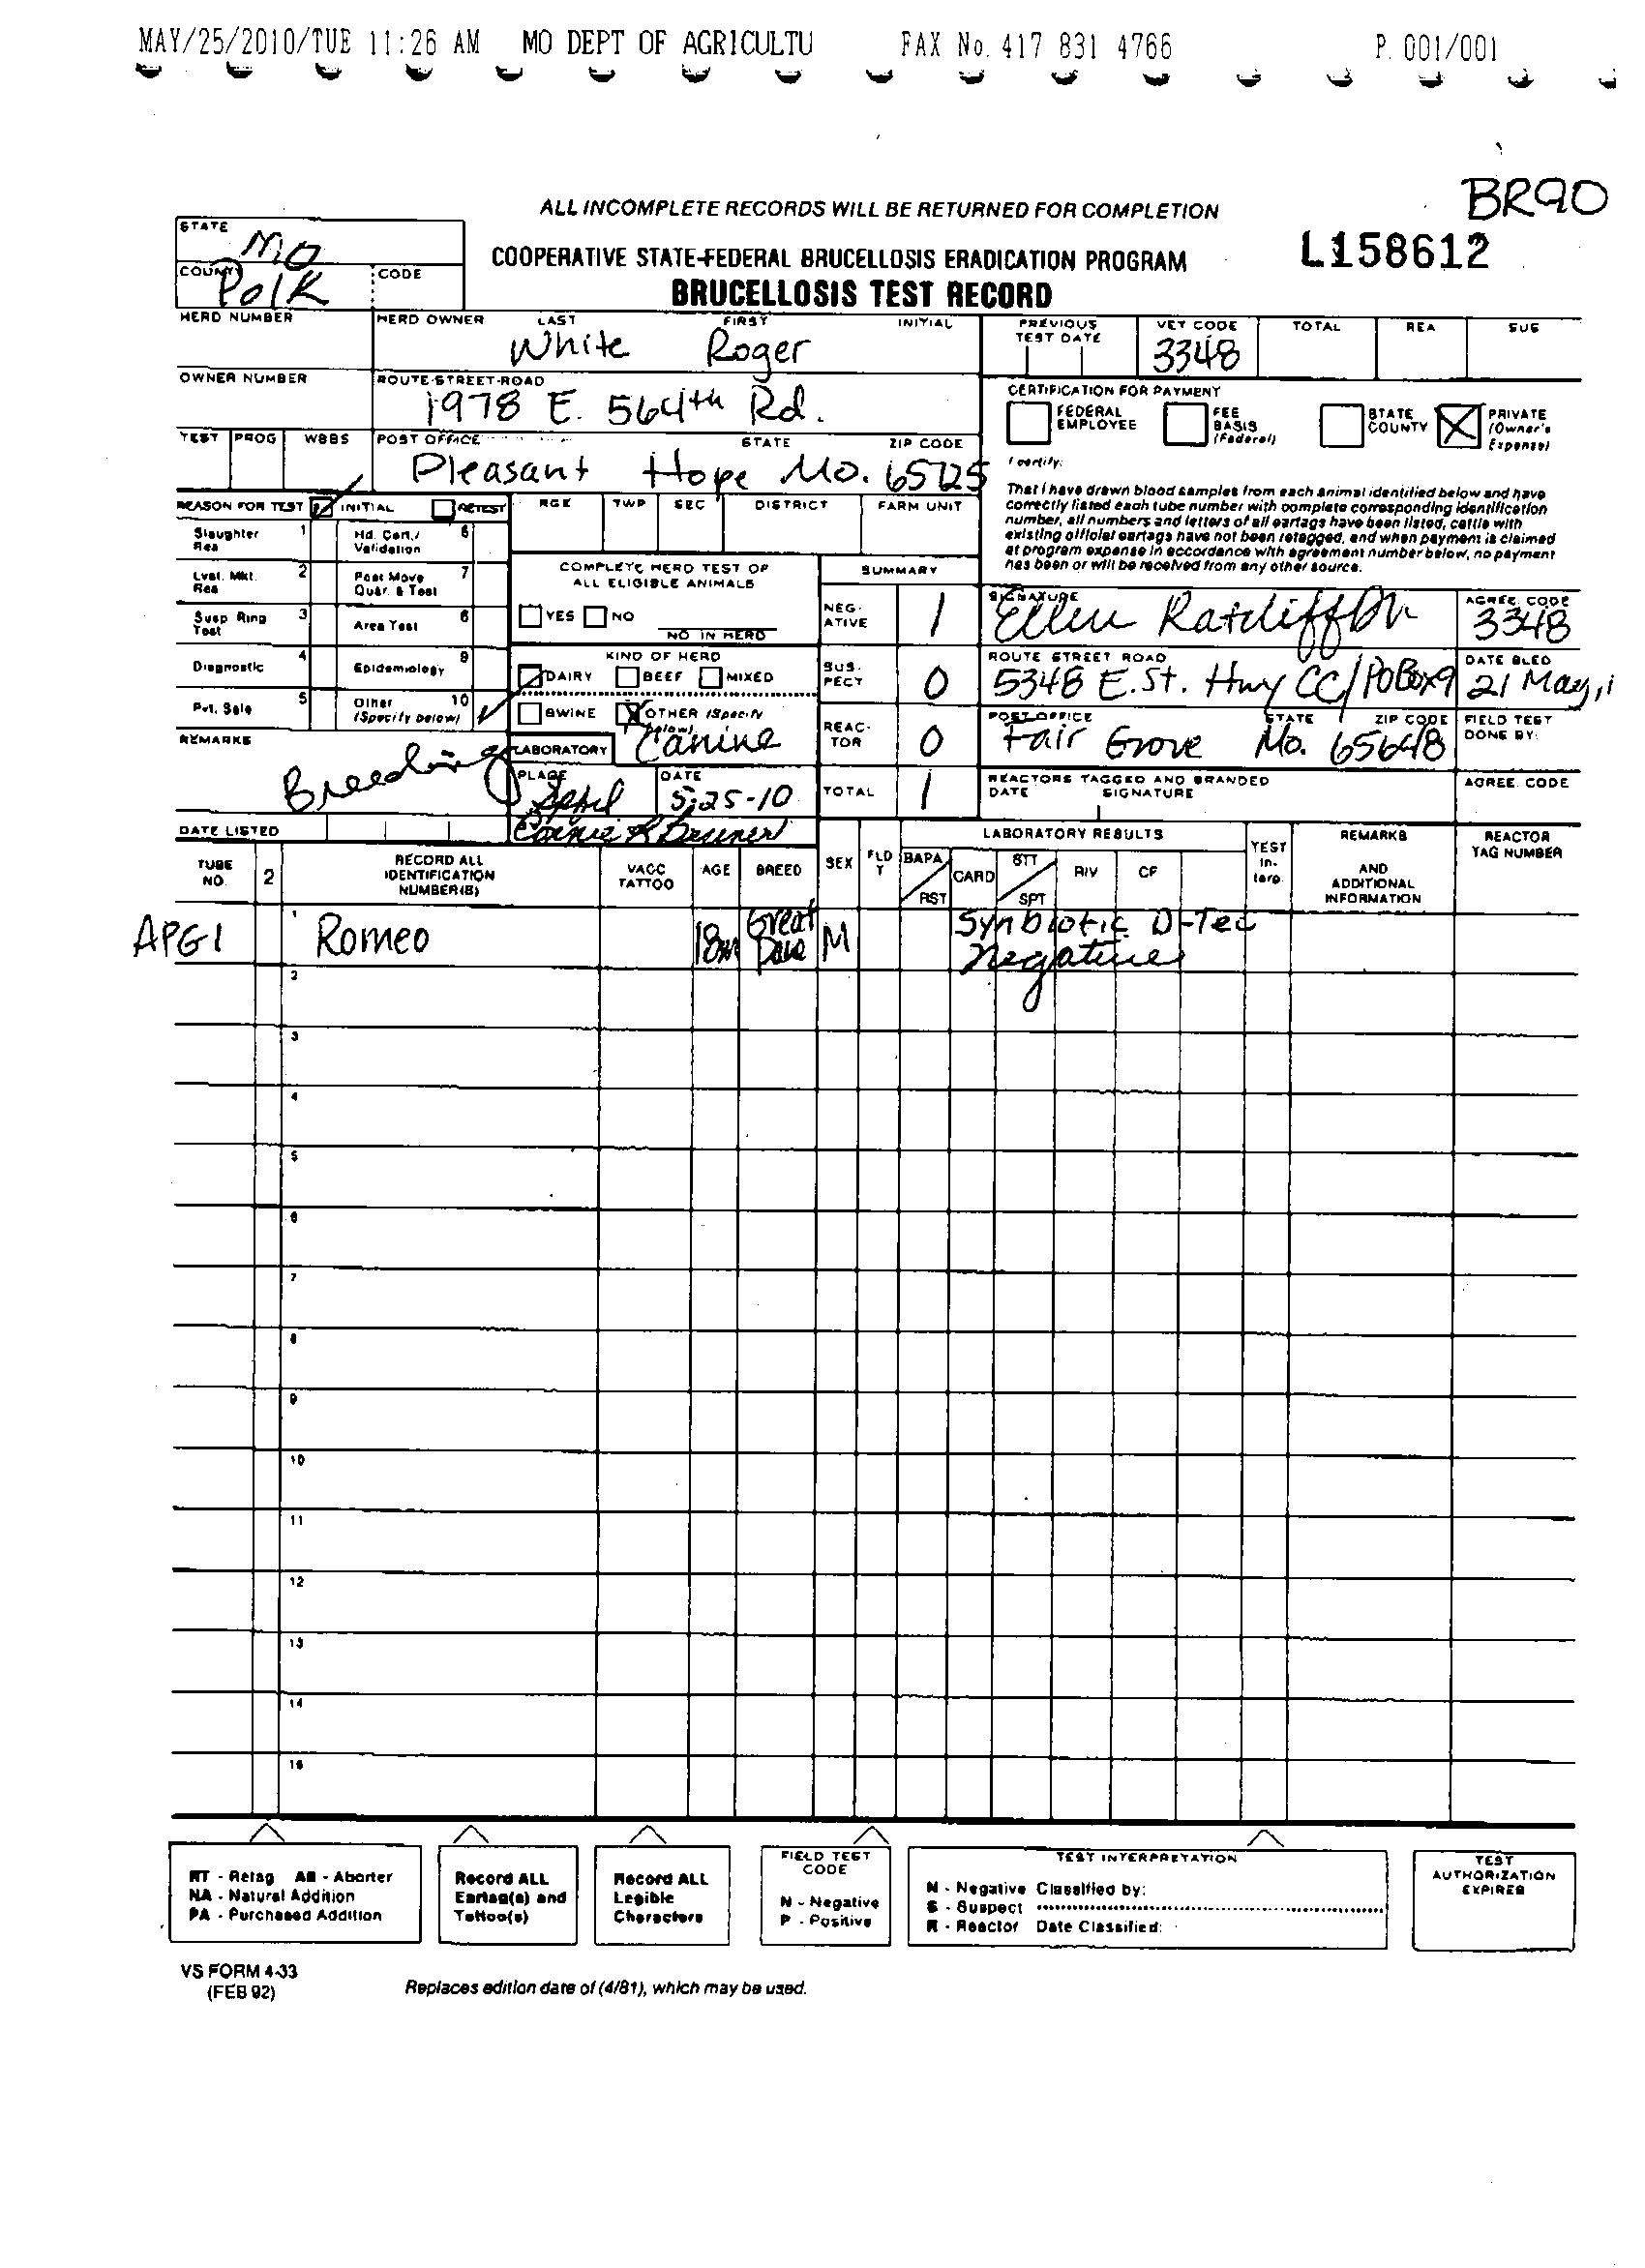 MAY/25/2010/TUE 11:26 AM MO DEPT OF AGRICULTU FAX No. 417 831 4766 P. 001/001
BR90
ALL INCOMPLETE RECORDS WILL BE RETURNED FOR COMPLETION
L158612
COOPERATIVE STATE-FEDERAL BRUCELLOSIS ERADICATION PROGRAM
BRUCELLOSIS TEST RECORD
STATE
MO
COUNTY CODE
Polk
HERD NUMBER HERD OWNER LAST FIRST INITIAL
White Roger
PREVIOUS TEST DATE VET CODE TOTAL REA SUS
3348
OWNER NUMBER ROUTE-STREET-ROAD
1978 E. 564th Rd.
CERTIFICATION FOR PAYMENT
FEDERAL EMPLOYEE FEE BASIS (Federal) STATE COUNTY PRIVATE (Owner's Expense)
TEST PROG WBBS POST OFFICE STATE ZIP CODE
Pleasant Hope Mo. 65725
I certify:
That I have drawn blood samples from each animal identified below and have
correctly listed each tube number with complete corresponding identification
number, all numbers and letters of all eartags have been listed, cattle with
existing official eartags have not been retagged, and when payment is claimed
at program expense in accordance with agreement number below, no payment
has been or will be received from any other source.
REASON FOR TEST INITIAL RETEST
RGE TWP SEC DISTRICT FARM UNIT
Slaughter Rea 1 Hd. Cert./ Validation 6
Lvst. Mkt. Rea 2 Post Move Quar. & Test 7
Susp Ring Test 3 Area Test 8
Diagnostic 4 Epidemiology 9
Pvt. Sale 5 Other (Specify below) 10
REMARKS
Breeding
COMPLETE HERD TEST OF
ALL ELIGIBLE ANIMALS
YES NO
NO IN HERD
KIND OF HERD
DAIRY BEEF MIXED
SWINE OTHER (Specify below)
Canine
LABORATORY
PLACE DATE
Spfd 5-25-10
Connie K Bruner
SUMMARY
NEG- ATIVE 1
SUS- PECT 0
REAC- TOR 0
TOTAL 1
SIGNATURE AGREE. CODE
Ellen Ratcliff DVM 3348
ROUTE STREET ROAD DATE BLED
5348 E. St. Hwy CC/PO Box 9 21 May, 1
POST OFFICE STATE ZIP CODE FIELD TEST DONE BY:
Fair Grove Mo. 65648
REACTORS TAGGED AND BRANDED AGREE. CODE
DATE SIGNATURE
DATE LISTED
TUBE NO. 2 RECORD ALL IDENTIFICATION NUMBER(S) VACC TATTOO AGE BREED SEX FLD T LABORATORY RESULTS BAPA RST CARD STT SPT RIV CF TEST In- terp. REMARKS AND ADDITIONAL INFORMATION REACTOR TAG NUMBER
APG1 1 Romeo 18m Great Dane M Synbiotic D-Tec
Negative
2
3
4
5
6
7
8
9
10
11
12
13
14
15
RT - Retag AB - Aborter
NA - Natural Addition
PA - Purchased Addition
Record ALL
Eartag(s) and
Tattoo(s)
Record ALL
Legible
Characters
FIELD TEST
CODE
N - Negative
P - Positive
TEST INTERPRETATION
N - Negative Classified by:
S - Suspect
R - Reactor Date Classified:
TEST
AUTHORIZATION
EXPIRES
VS FORM 4-33
(FEB 92)
Replaces edition date of (4/81), which may be used.